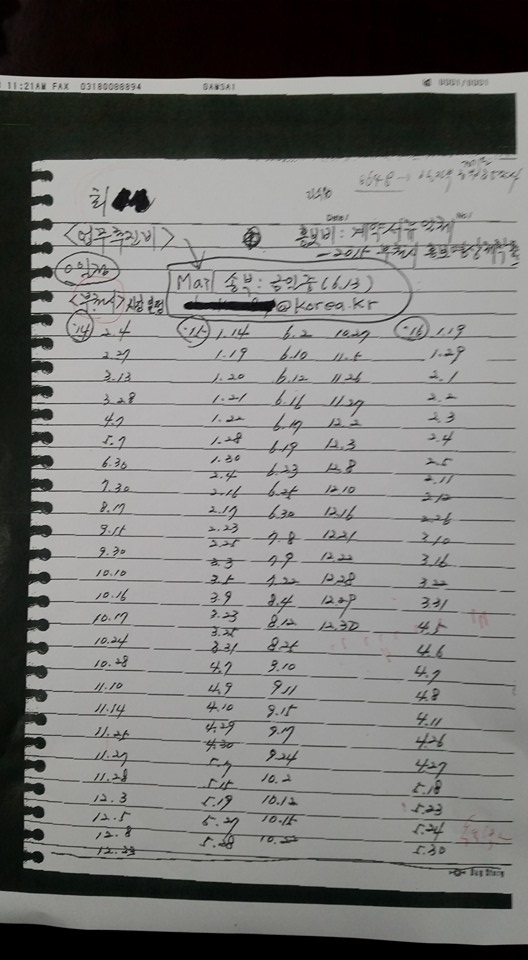 11:21AM FAX 03180088894 GAMSA1 0001/0001
Date /
<업무추진비> 홍보비 : 계약서류 일체
-2015 부천시 홍보
0일정
Mail 송부 : 금의종 (6.13)
@korea.kr
<부천시>
'14 2.4 '15 1.14 6.2 10.27 '16 1.19
2.27 1.19 6.10 11.5 1.29
3.13 1.20 6.12 11.26 2.1
3.28 1.21 6.16 11.27 2.2
4.7 1.22 6.17 12.2 2.3
5.7 1.28 6.19 12.3 2.4
6.30 1.30 6.23 12.8 2.5
7.30 2.4 6.25 12.10 2.11
8.17 2.16 6.30 12.16 2.12
9.15 2.17 7.8 12.21 2.26
9.30 2.23 7.9 12.22 3.10
10.10 2.25 7.22 12.28 3.16
10.16 3.3 8.4 12.29 3.22
10.17 3.5 8.12 12.30 3.31
10.24 3.9 8.25 4.5
10.28 3.23 9.10 4.6
11.10 3.25 9.11 4.7
11.14 3.31 9.15 4.8
11.25 4.7 9.17 4.11
11.27 4.9 9.24 4.26
11.28 4.10 10.2 4.27
12.3 4.29 10.12 5.18
12.5 4.30 10.15 5.23
12.8 5.7 10.22 5.24
12.23 5.15 5.30
5.19
5.27
5.28